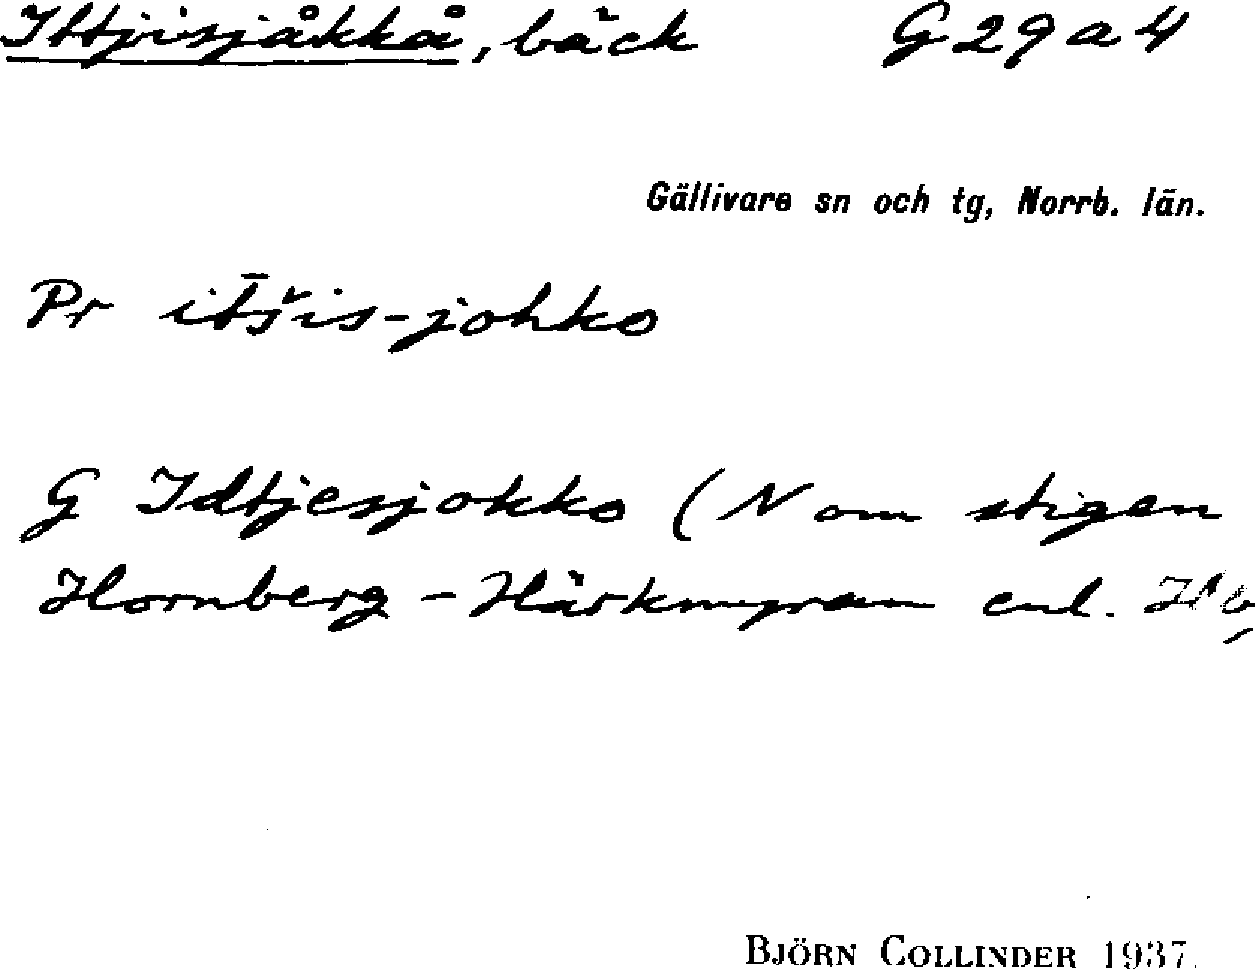 Ittjisjåkkå, bäck G29a4
Gällivare sn och tg, Norrb. län.
Pr it̄šis-johko
G Idtjesjokko (N om stigen
Hornberg - Härkmyran enl.
BJÖRN COLLINDER 1937.